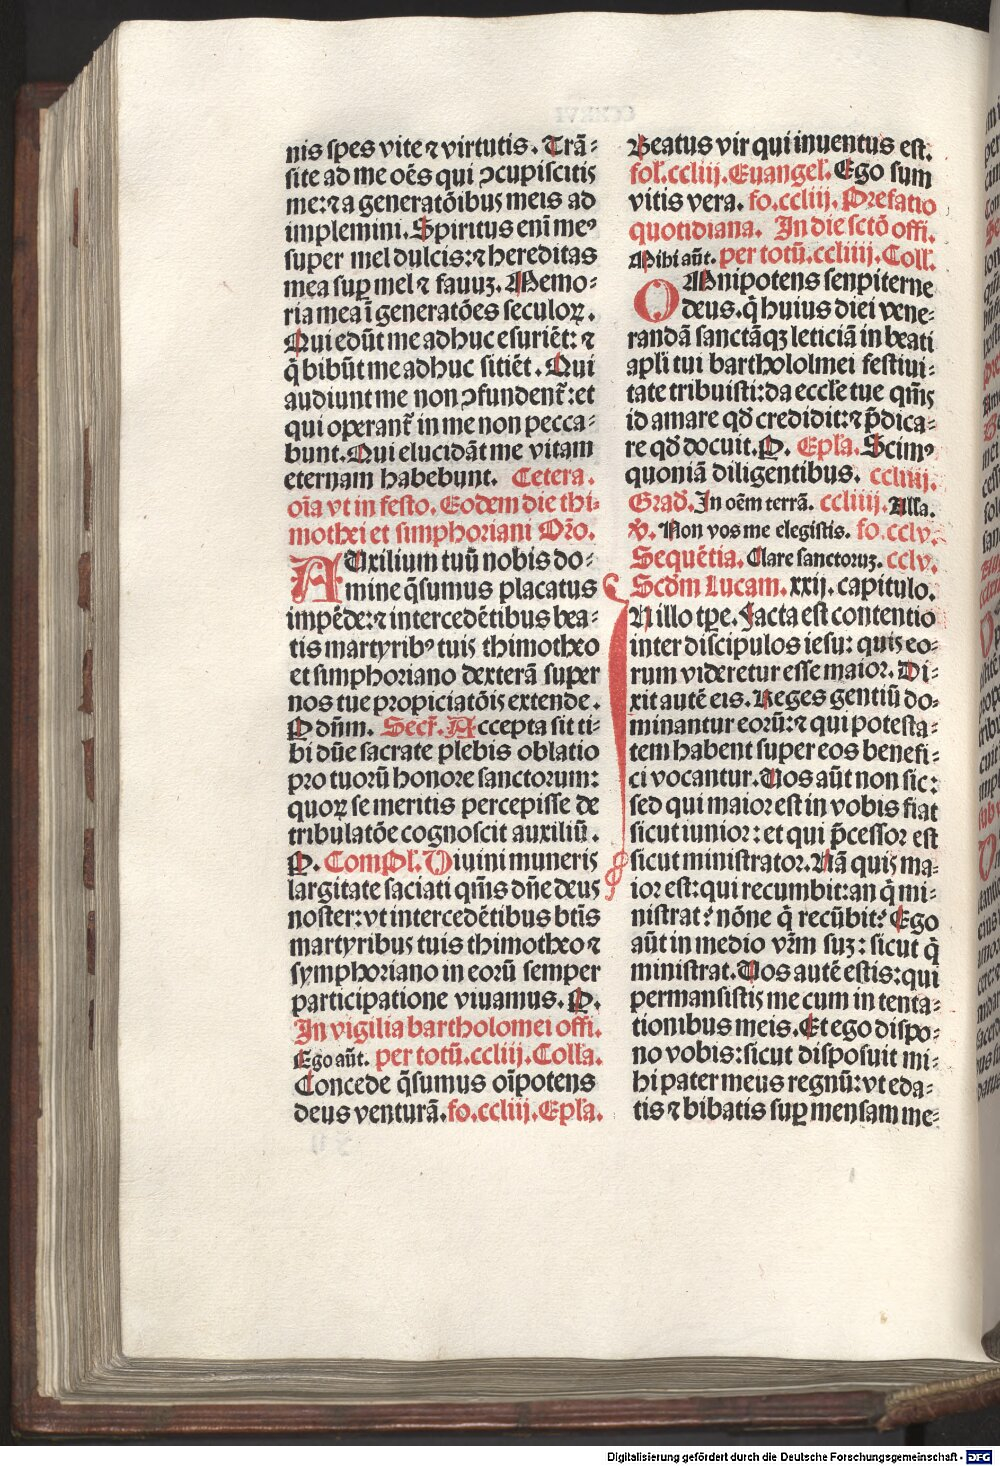 nis spes vite ⁊ virtutis. Trā-
site ad me oēs qui ɔcupiscitis
me: ⁊ a generatōibus meis ad
implemini. Spiritus eni̅ meꝰ
super mel dulcis: ⁊ hereditas
mea sup̲ mel ⁊ fauuꝫ. Memo-
ria mea ī generatōes seculoꝝ.
Qui edūt me adhuc esuriēt: ⁊
q̄ bibūt me adhuc sitiēt. Qui
audiunt me non ɔfundent̄: et
qui operant̄ in me non pecca-
bunt. Qui elucidāt me vitam
eternam habebunt. Cetera.
oīa vt in festo. Eodem die thi-
mothei et simphoriani Or̄o.
AUxilium tuū nobis do-
mine q̄sumus placatus
impēde: ⁊ intercedētibus bea-
tis martyribꝰ tuis thimotheo
et simphoriano dexterā super
nos tue propiciatōis extende.
P dn̄m. Secr̄. Accepta sit ti-
bi dn̄e sacrate plebis oblatio
pro tuorū honore sanctorum:
quoꝝ se meritis percepisse de
tribulatōe cognoscit auxiliū.
P. Compl̄. Diuini muneris
largitate saciati qm̄s dn̄e deus
noster: vt intercedētibus bt̄is
martyribus tuis thimotheo ⁊
symphoriano in eorū semper
participatione viuamus. P.
In vigilia bartholomei offi.
Ego aūt. per totū. ccliij. Coll̄a.
Concede q̄sumus oīpotens
deus venturā. fo. ccliij. Epl̄a.
Beatus vir qui inuentus est.
fol̄. ccliij. Euangel̄. Ego sum
vitis vera. fo. ccliij. Prefatio
quotidiana. In die sctō offi.
Mihi aūt. per totū. ccliiij. Coll̄.
OMnipotens senpiterne
deus. q̄ huius diei vene-
randā sanctāqꝫ leticiā in beati
apl̄i tui barthololmei festiui-
tate tribuisti: da eccl̄e tue qm̄s
id amare qd̄ credidit: ⁊ p̄dica-
re qd̄ docuit. P. Epl̄a. Scimꝰ
quoniā diligentibus. ccliiij.
Grad̄. In oēm terrā. ccliiij. Alla.
v̄. Non vos me elegistis. fo. cclv.
Sequētia. Clare sanctoruꝫ. cclv.
Scd̄m Lucam. xxij. capitulo.
IN illo tp̄e. Facta est contentio
inter discipulos iesu: quis eo-
rum videretur esse maior. Di-
xit autē eis. Reges gentiū do-
minantur eorū: ⁊ qui potesta-
tem habent super eos benefi-
ci vocantur. Uos aūt non sic:
sed qui maior est in vobis fiat
sicut iunior: et qui p̄cessor est
sicut ministrator. Nā quis ma-
ior est: qui recumbit: an q̄ mi-
nistrat? nōne q̄ recūbit? Ego
aūt in medio vr̄m suꝫ: sicut q̄
ministrat. Uos autē estis: qui
permansistis me cum in tenta-
tionibus meis. Et ego dispo-
no vobis: sicut disposuit mi-
hi pater meus regnū: vt eda-
tis ⁊ bibatis sup̲ mensam me-
Digitalisierung gefördert durch die Deutsche Forschungsgemeinschaft - DFG